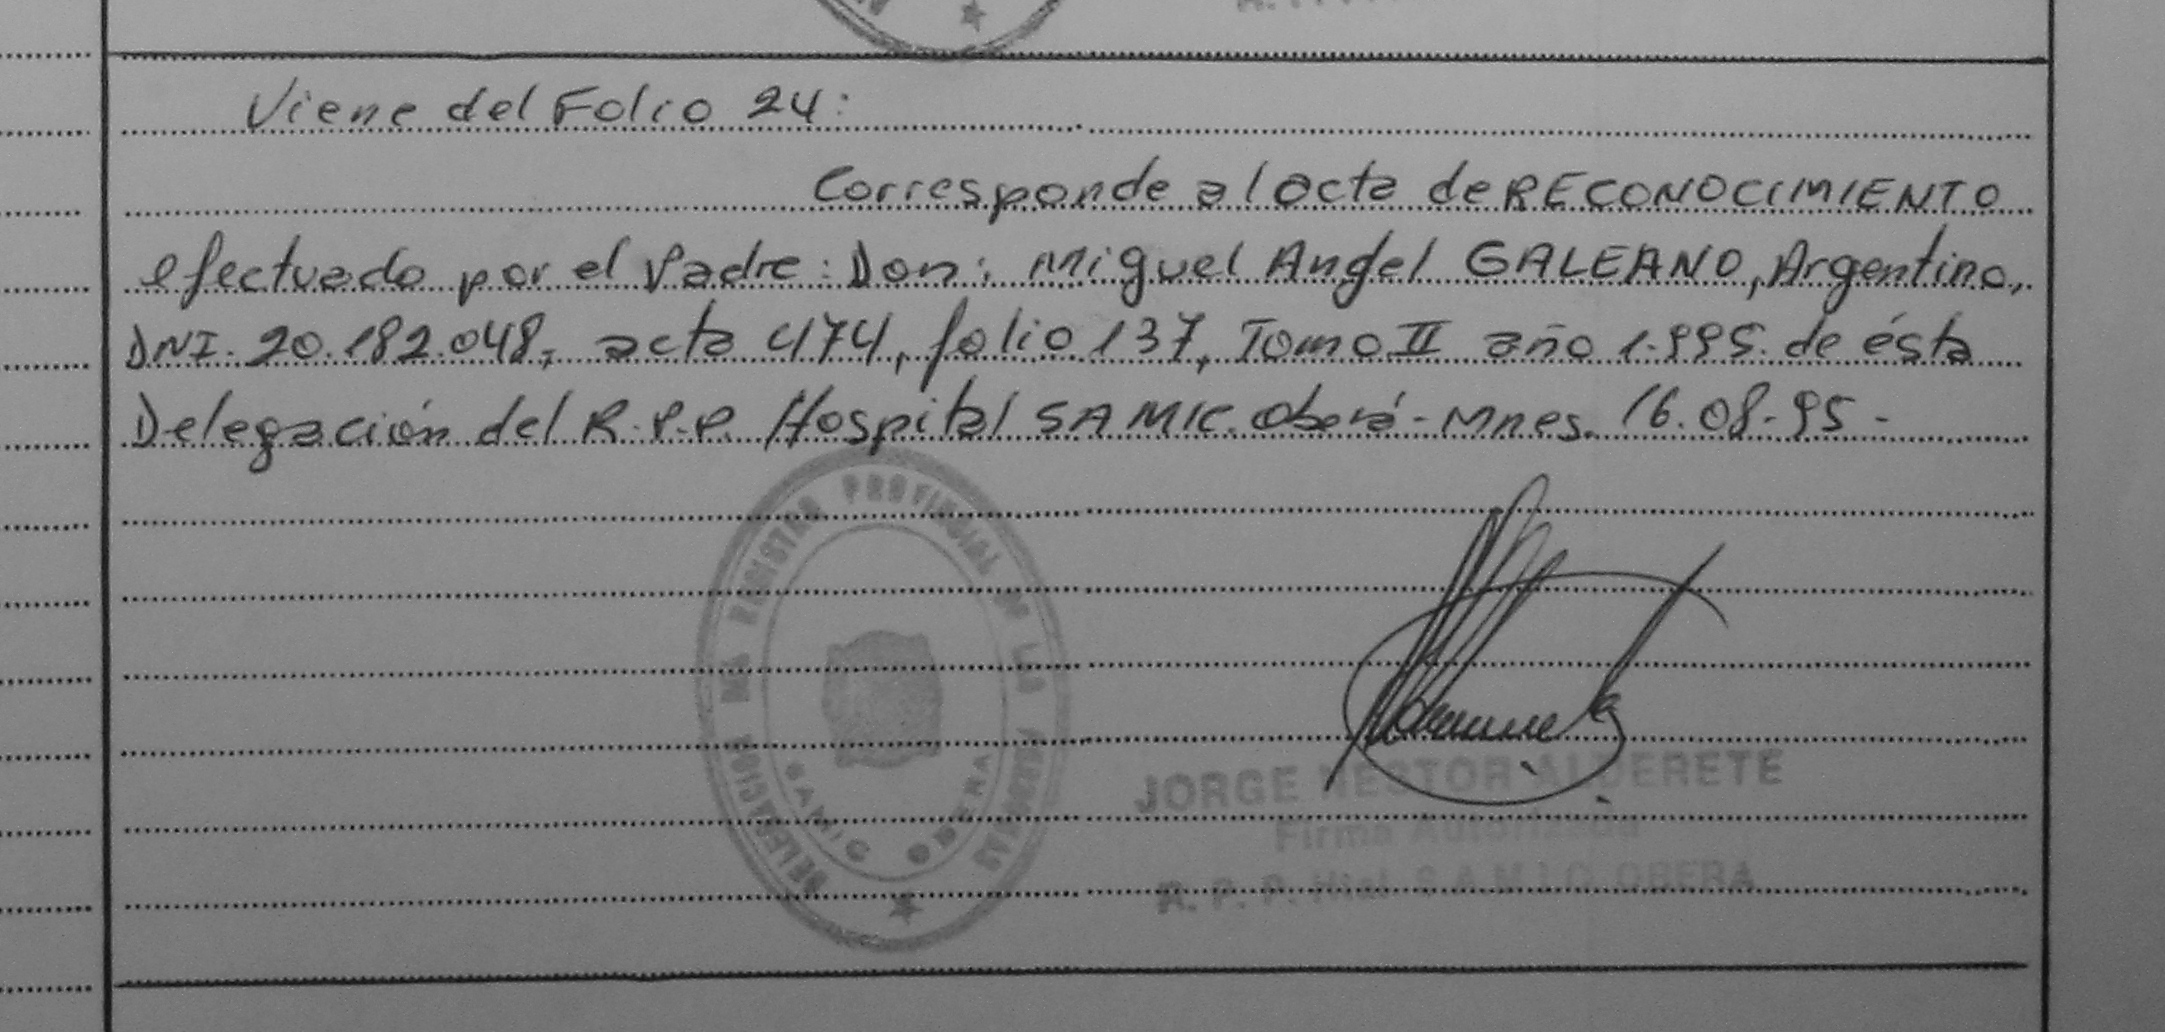 Viene del Folio 24:
Corresponde al acta de RECONOCIMIENTO
efectuado por el Padre: Don: Miguel Angel GALEANO, Argentino,
DNI. 20.182.048, acta 474, folio 137, Tomo II año 1.995. de ésta
Delegación del R.P.P. Hospital SAMIC. Oberá - Mnes. 16.08-95-
DELEGACION REGISTRO PROVINCIAL DE LAS PERSONAS
SAMIC OBERA
JORGE NESTOR ALDERETE
Firma Autorizada
R. P. P. Htal. S A M I C OBERA